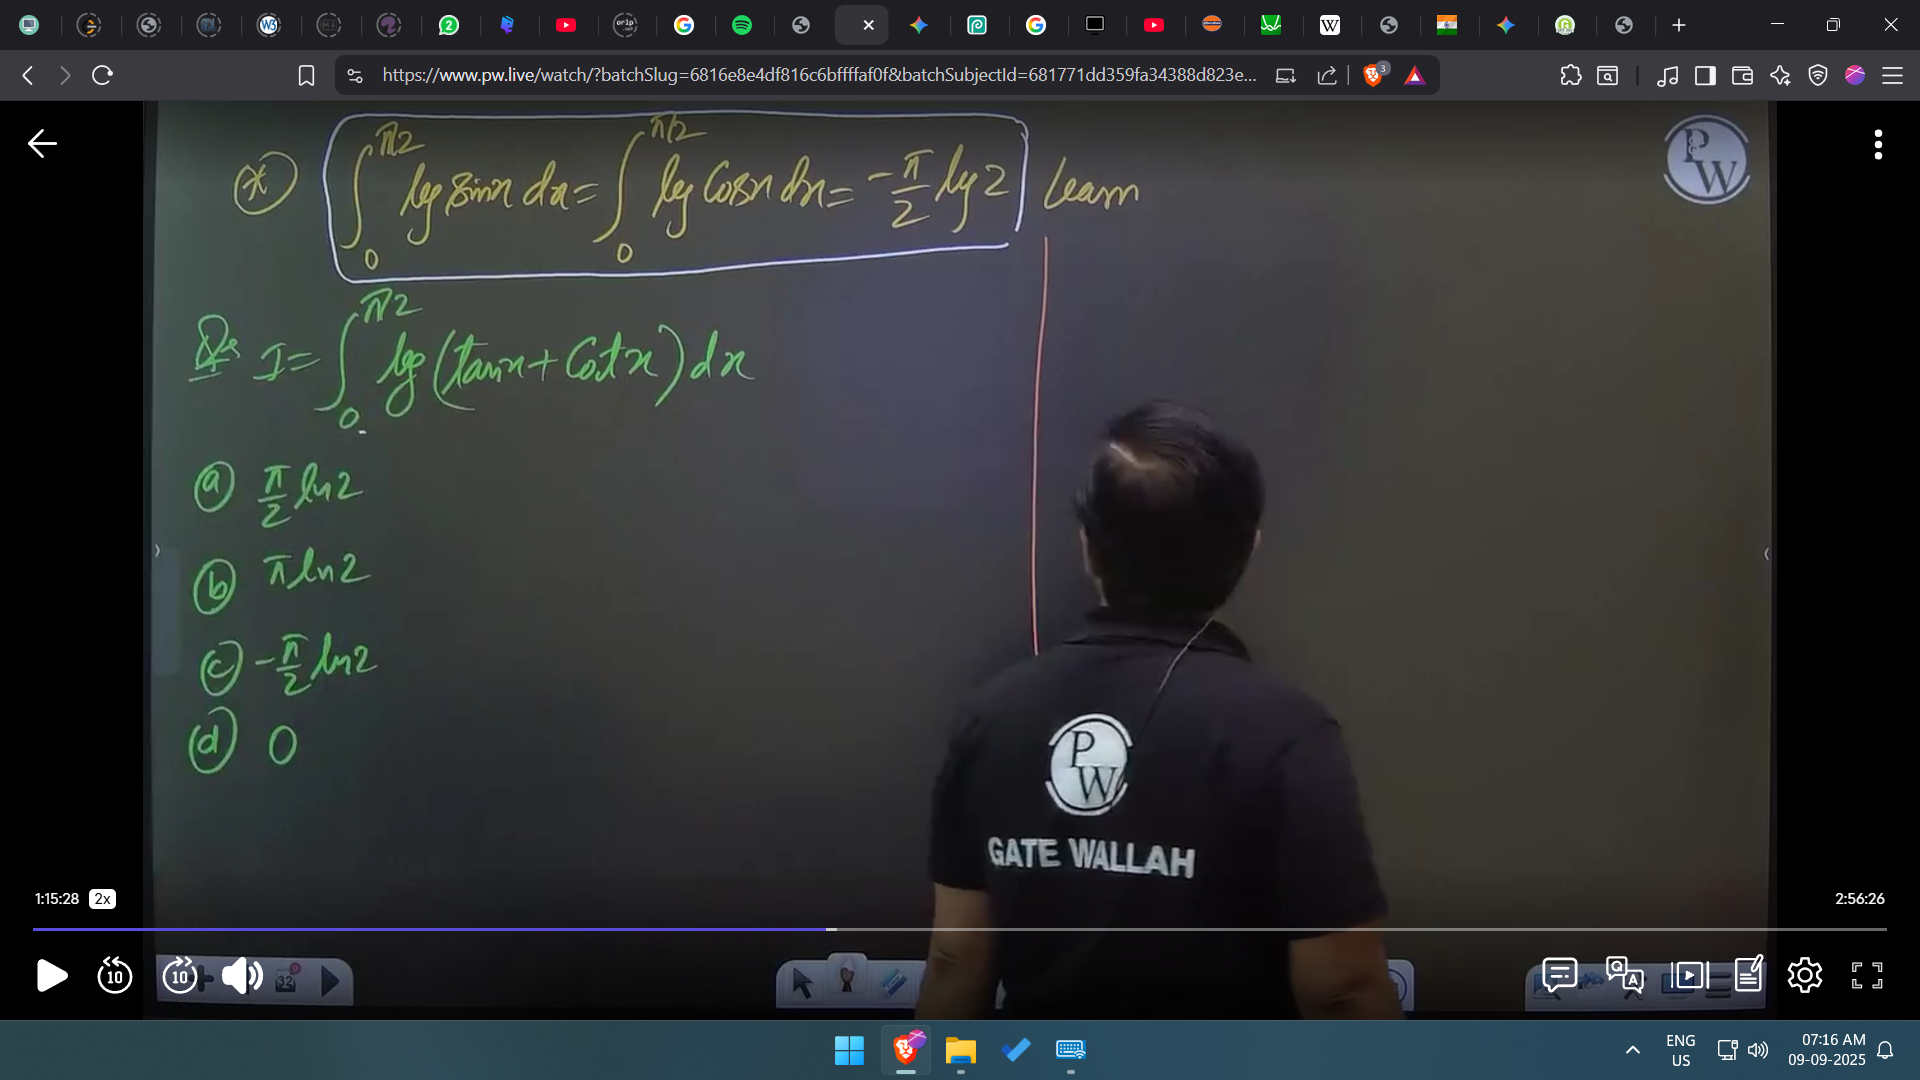 https://www.pw.live/watch/?batchSlug=6816e8e4df816c6bffffaf0f&batchSubjectId=681771dd359fa34388d823e...
3
(*) ∫₀^(π/2) log sinx dx = ∫₀^(π/2) log Cosx dx = -π/2 log 2 Learn
PW
Q. I = ∫₀^(π/2) log(tanx + Cotx) dx
(a) π/2 ln2
(b) π ln2
(c) -π/2 ln2
(d) 0
PW
GATE WALLAH
1:15:28 2x 2:56:26
10 10 32
Q A
ENG
US
07:16 AM
09-09-2025